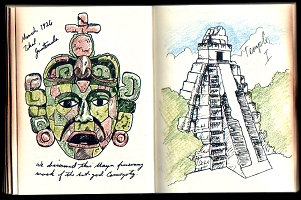 March 1926
Tikal
Guatemala
We discovered this Maya funerary
mask of the bat god
Temple
I